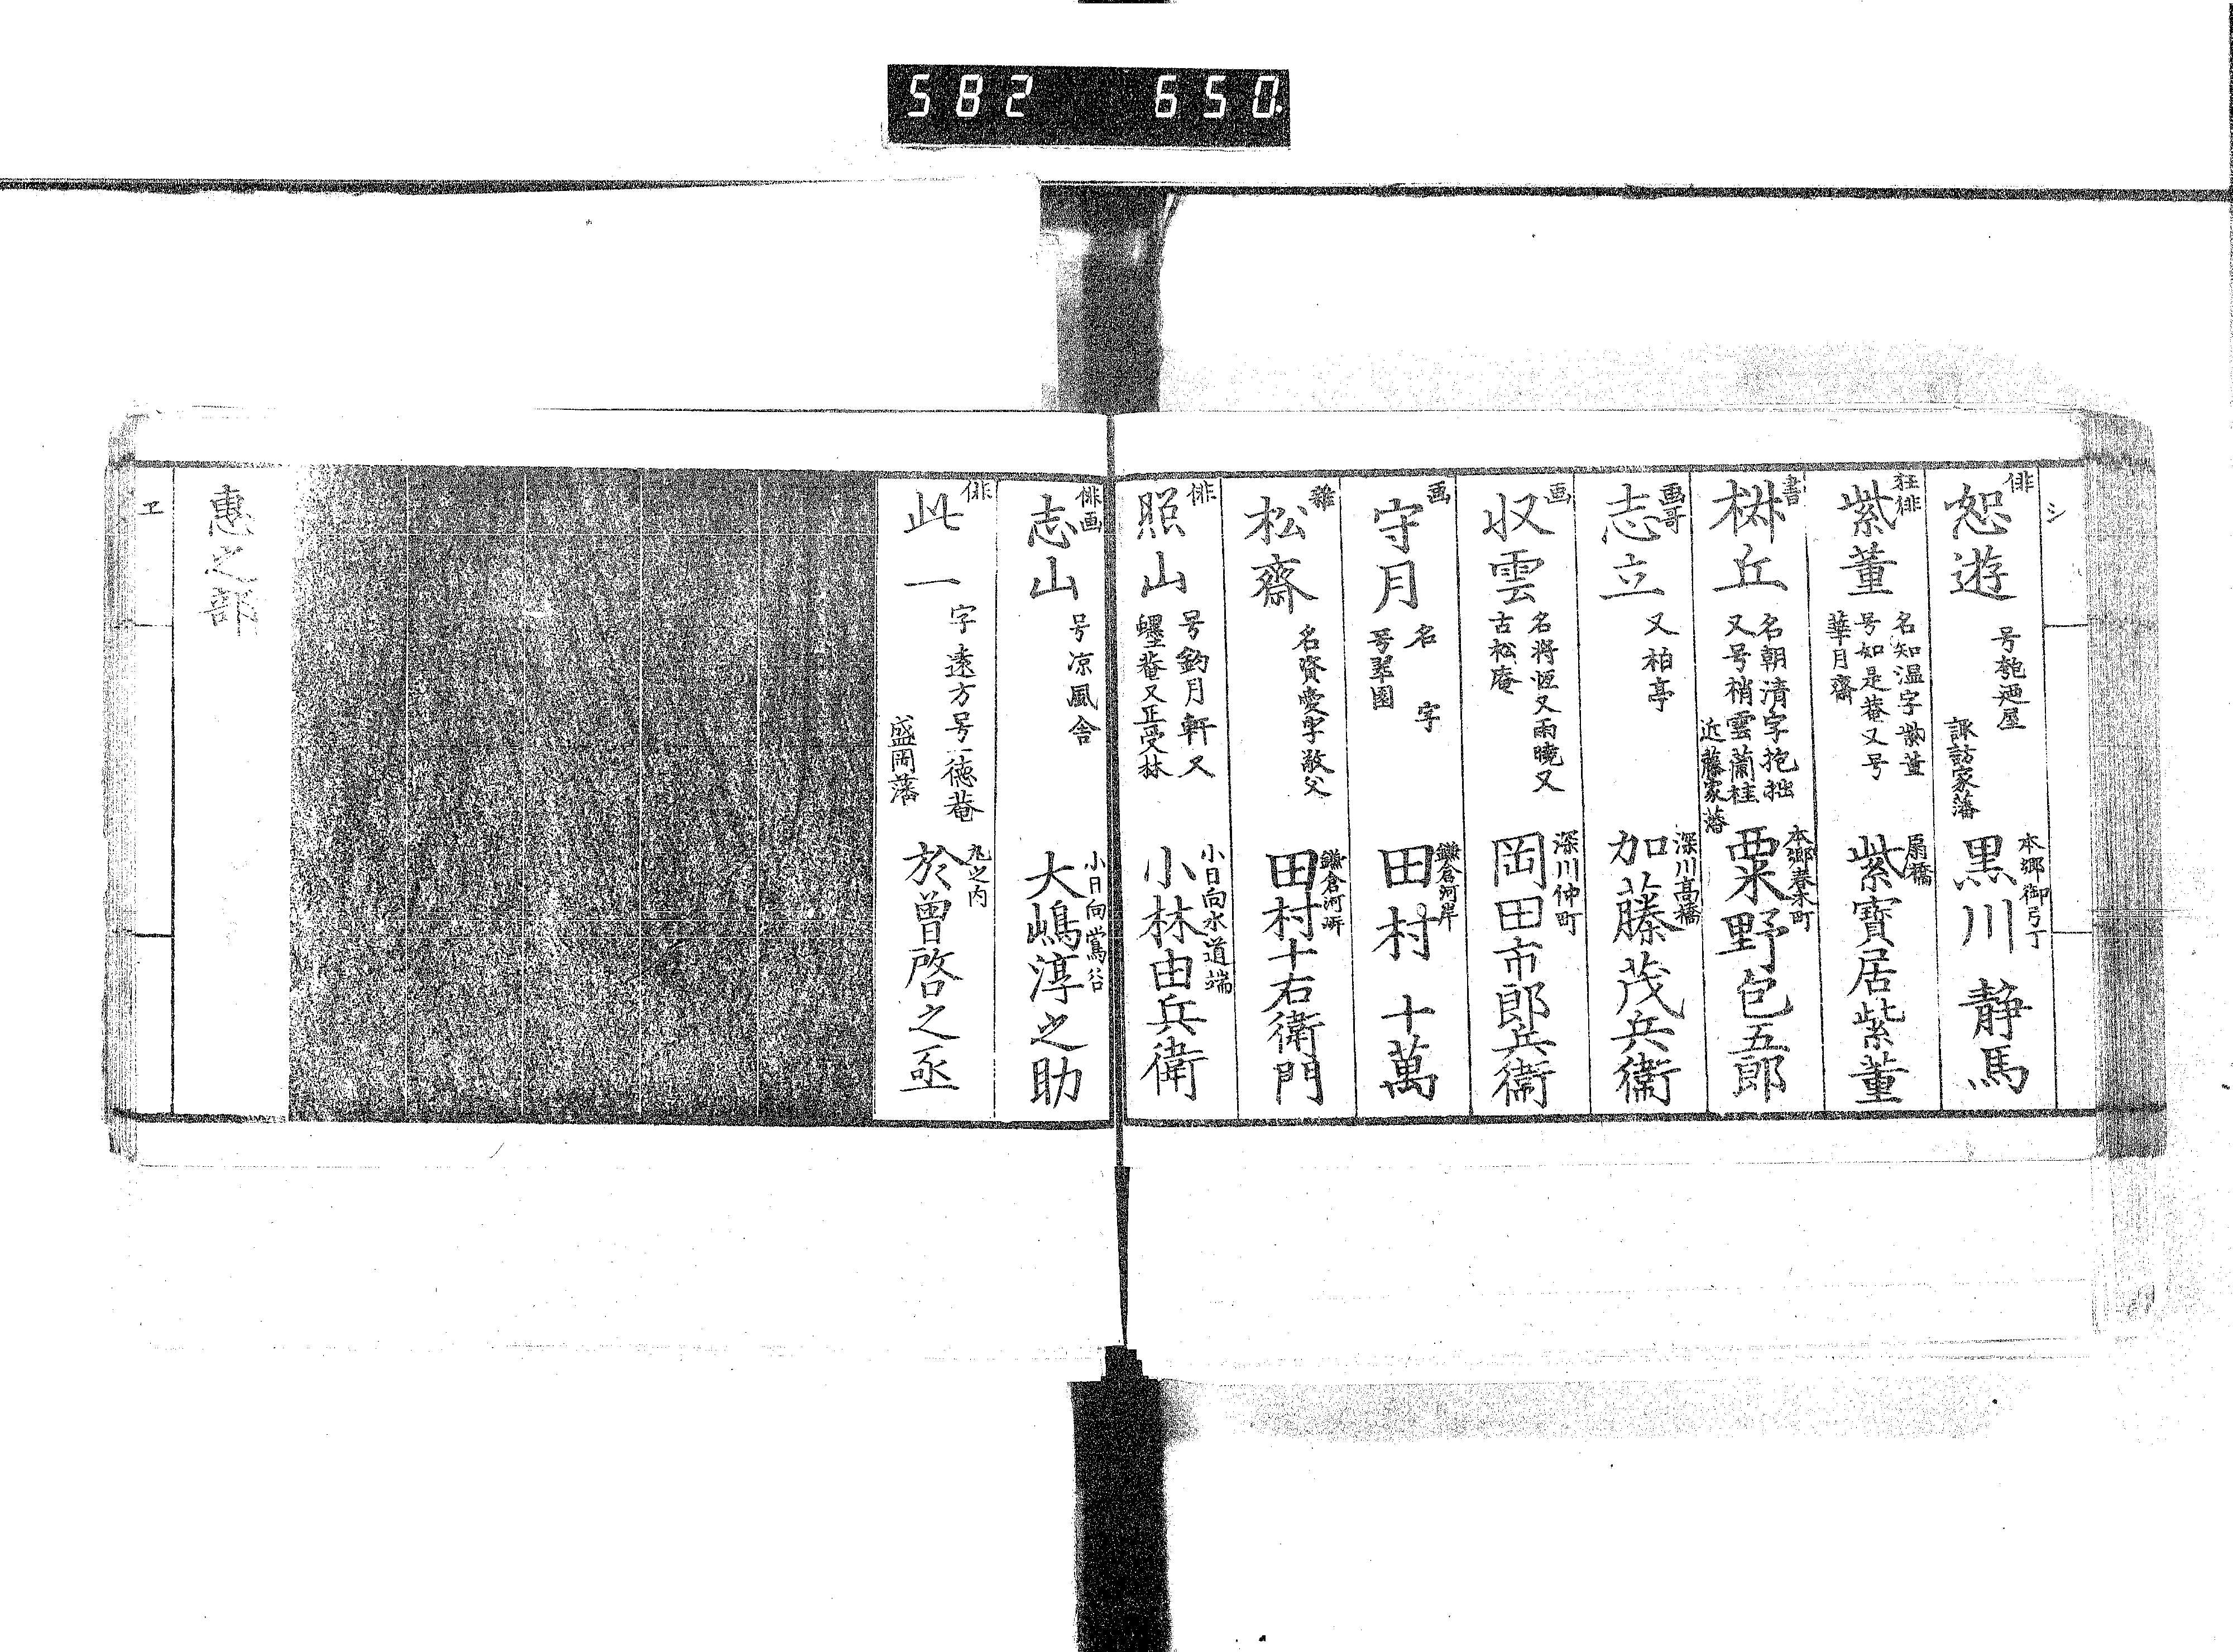 582 650.
シ
俳
恕遊
号匏廼屋
諏訪家藩
本郷御弓丁
黒川静馬
狂俳
紫菫
名知温字紫菫
号如是菴又号
華月齋
扇橋
紫寶居紫菫
書
楙丘
名朝清字抱拙
又号梢雲蘭桂
近藤家藩
本郷春木町
粟野包五郎
画哥
志立
又柏亭
深川高橋
加藤茂兵衞
画
収雲
名将恒又雨曉又
古松庵
深川仲町
岡田市郎兵衞
画
守月
名 字
号翠園
鎌倉河岸
田村十萬
雜
松齋
名資愛字敬父
鎌倉河岸
田村十右衛門
俳
照山
号釣月軒又
菴又正受林
小日向水道端
小林由兵衛
俳画
志山
号凉風舎
小日向鶯谷
大嶋淳之助
俳
此一
字遠方号一徳菴
盛岡藩
丸之内
於曾啓之丞
惠之部
ヱ